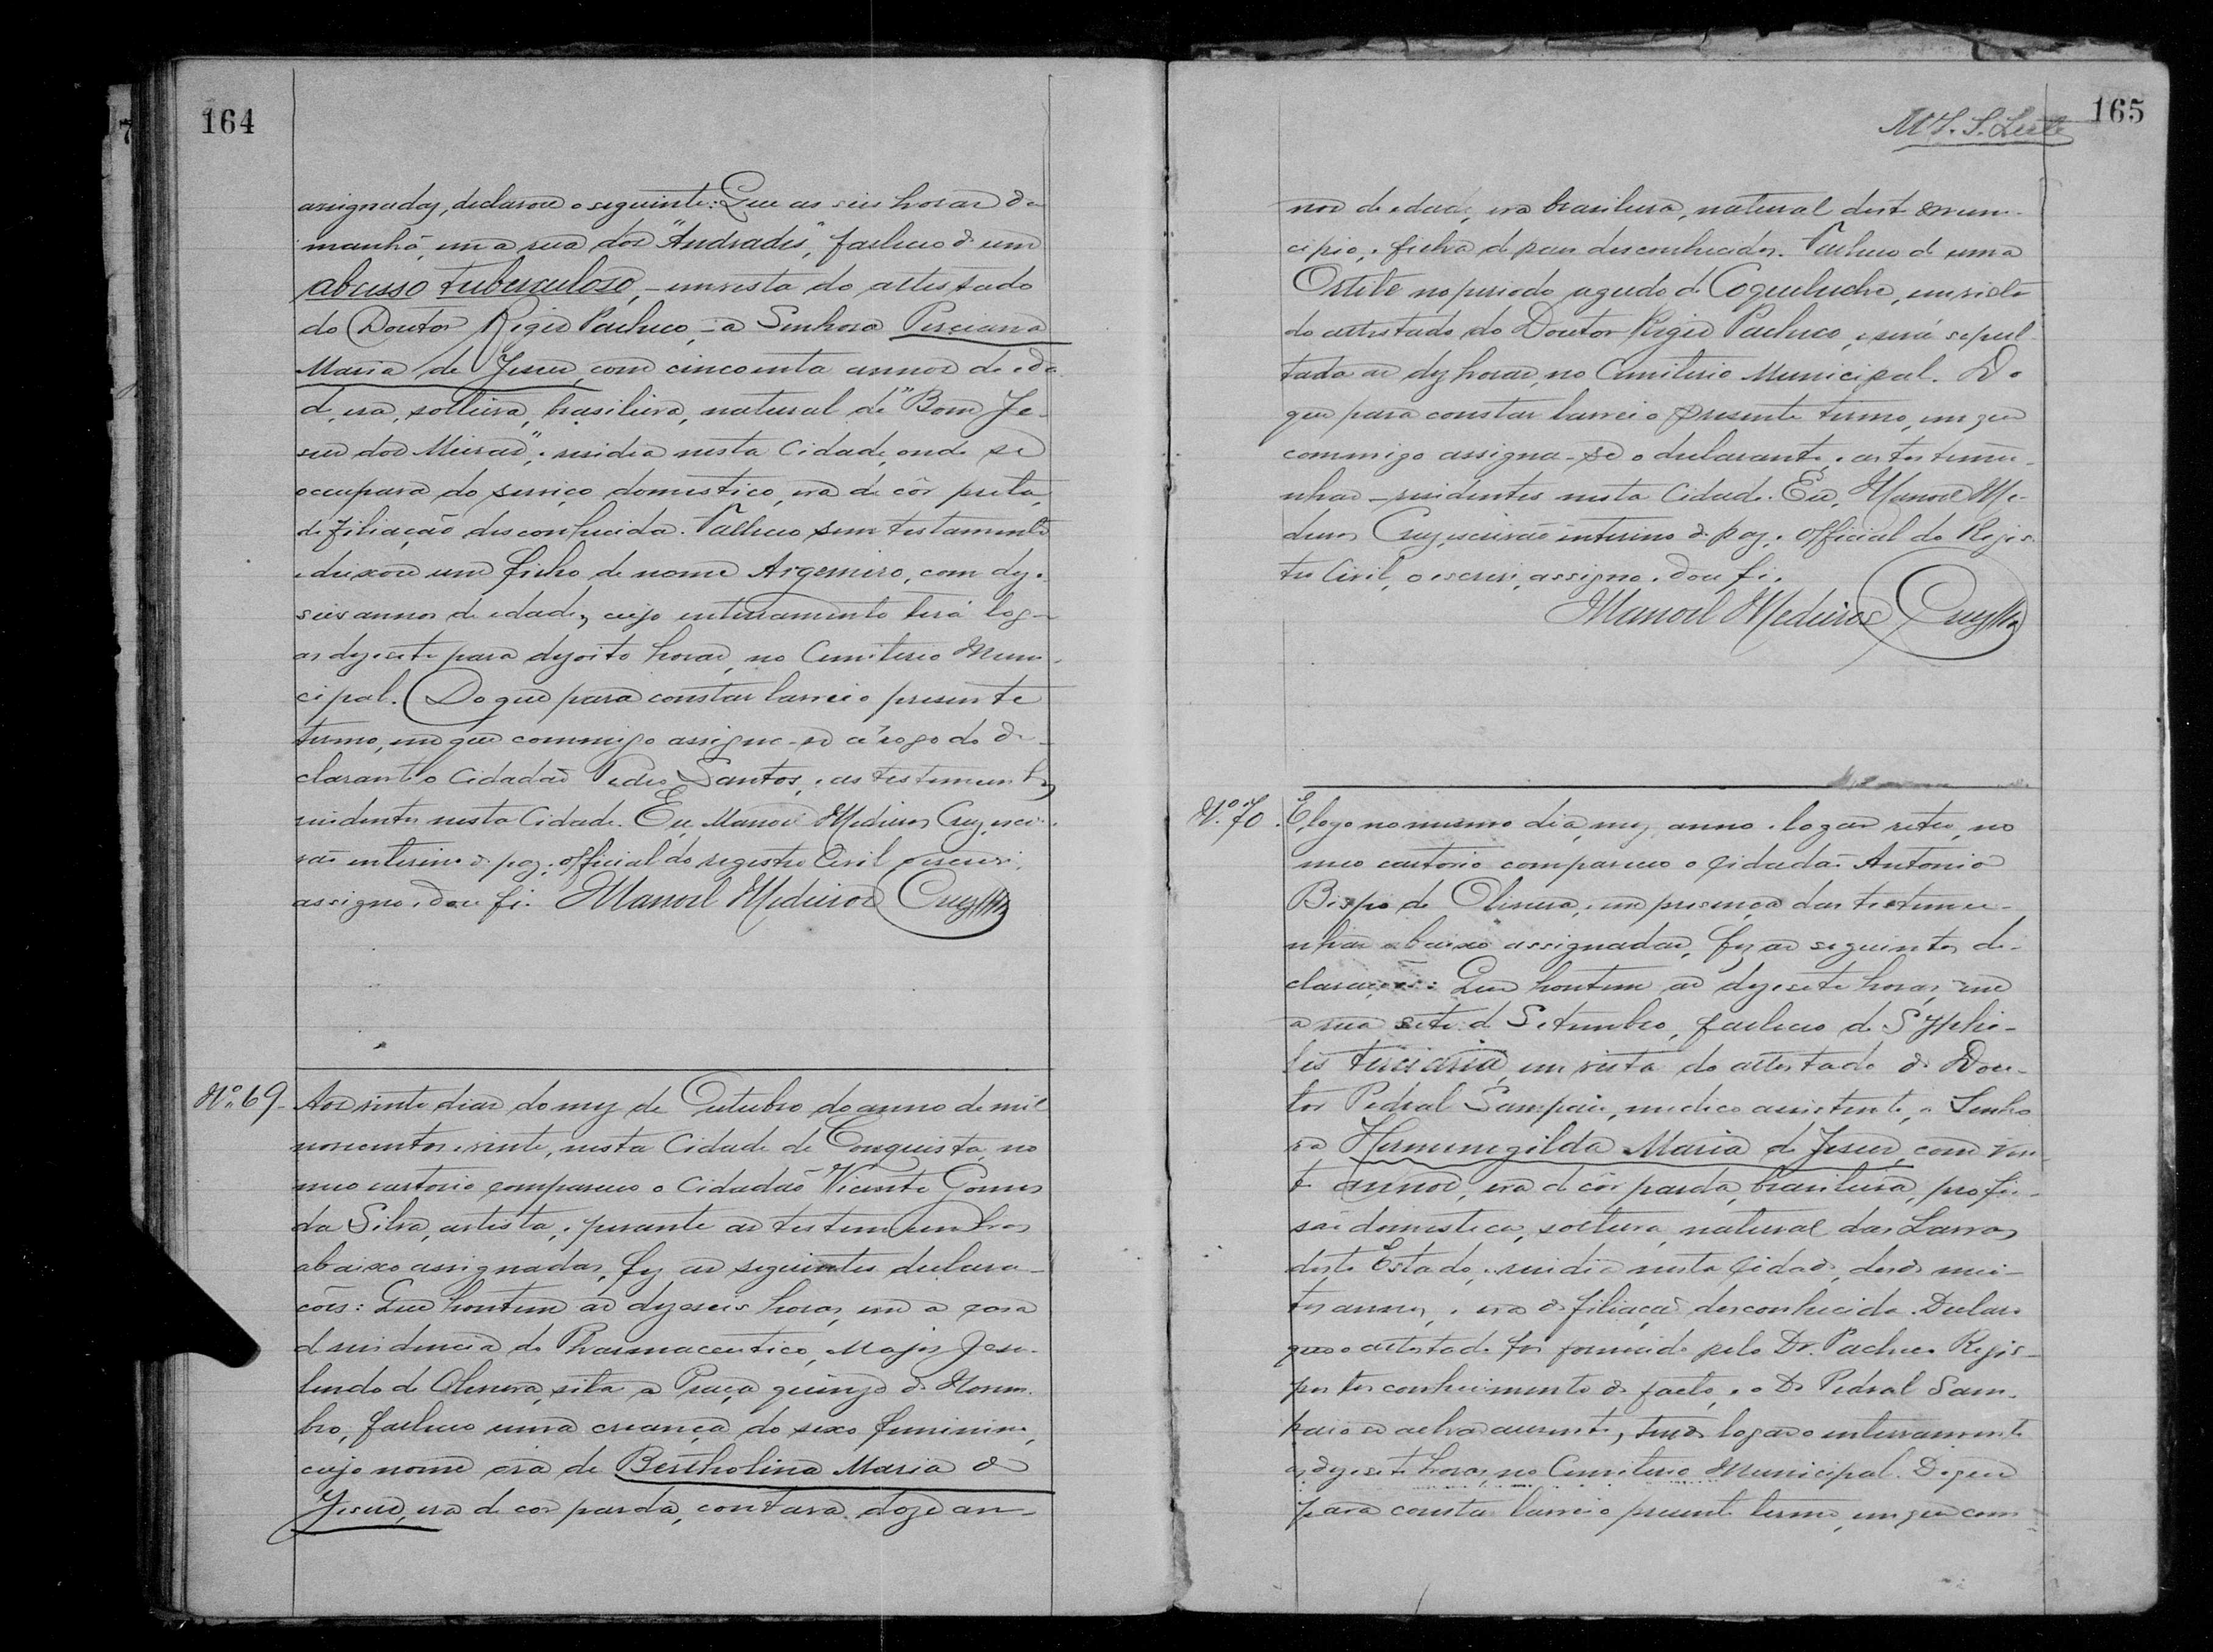 164
assignadas, declarou o seguinte: Que as seis horas da
manhã, em a rua dos "Andrades", falleceu de um
abcesso tuberculoso, - em vista do attestado
do Doutor Regis Pacheco, - a Senhora Perciana
Maria de Jesus, com cincoenta annos de eda
de, era, solteira, brasileira, natural de "Bom Je-
sus dos Meiras", e residia nesta Cidade, onde se
occupava do serviço domestico, era de côr preta,
de filiação desconhecida. Falleceu sem testamento
e deixou um filho de nome Argemiro, com dez e
seis annos de edade, cujo enterramento terá log-
ar dezesete para dezoito horas, no Cemiterio Muni-
cipal. Do que para constar lavrei o presente
termo, em que commigo assigna-se a rogo do de-
clarante o Cidadão Pedro Santos, e as testemunhas
residentes nesta Cidade. Eu, Manoel Medeiros Cruz, escri-
vão interino de paz e official do registro Civil o escrevi,
assigno e dou fé. Manoel Medeiros Cruz
Nº 69 - Aos vinte dias do mez de Outubro do anno de mil
novecentos e vinte, nesta Cidade de Conquista, no
meu cartorio compareceu o Cidadão Vicente Gomes
da Silva, artista, e perante as testemunhas
abaixo assignadas, fez as seguintes declara-
ções: Que hontem as dezeseis horas, em a casa
de residencia do Pharmaceutico, Major Jesu-
lindo de Oliveira, sita a Praça quinze de Novem-
bro, falleceu uma creança do sexo feminino,
cujo nome era de Bertholina Maria de
Jesus, era de cor parda, contava doze an-
165
M S. S. Leite
nos de edade, era brasileira, natural deste muni-
cipio, e filha de paes desconhecidos. Falleceu de uma
Ostite no periodo agudo de Coqueluche, em vista
do attestado do Doutor Regis Pacheco, e será sepul-
tada as dez horas, no Cemiterio Municipal. Do
que para constar lavrei o presente termo, em que
commigo assigna-se o declarante, e as testemu-
nhas - residentes nesta Cidade. Eu, Manoel Me-
deiros Cruz, escrivão interino de paz e official do Regis-
tro Civil, o escrevi, assigno e dou fé.
Manoel Medeiros Cruz
Nº 70. E, logo no mesmo dia, mez, anno e logar retro, no
meu cartorio compareceu o Cidadão Antonio
Bispo de Oliveira, e em presença das testemu-
nhas abaixo assignadas, fez as seguintes de-
clarações: Que hontem as dezesete horas, em
a rua sete de Setembro, falleceu de Syphi-
lis terciaria, em vista do attestado do Dou-
tor Pedral Sampaio, medico assistente, a Senho
ra Hermenegilda Maria de Jesus, com vin-
te annos, era de côr parda, brasileira, profis-
são domestica, solteira, natural das Lavras
deste Estado, e residia nesta Cidade, desde mui-
tos annos, e era de filiação desconhecida. Declaro
que o attestado foi fornecido pelo Dr. Pacheco Regis -
por ter conhecimento do facto, e o Dr. Pedral Sam-
paio se achar ausente, tendo logar o enterramento
as dezesete horas no Cemiterio Municipal. Do que
para constar lavrei o presente termo, em que com-